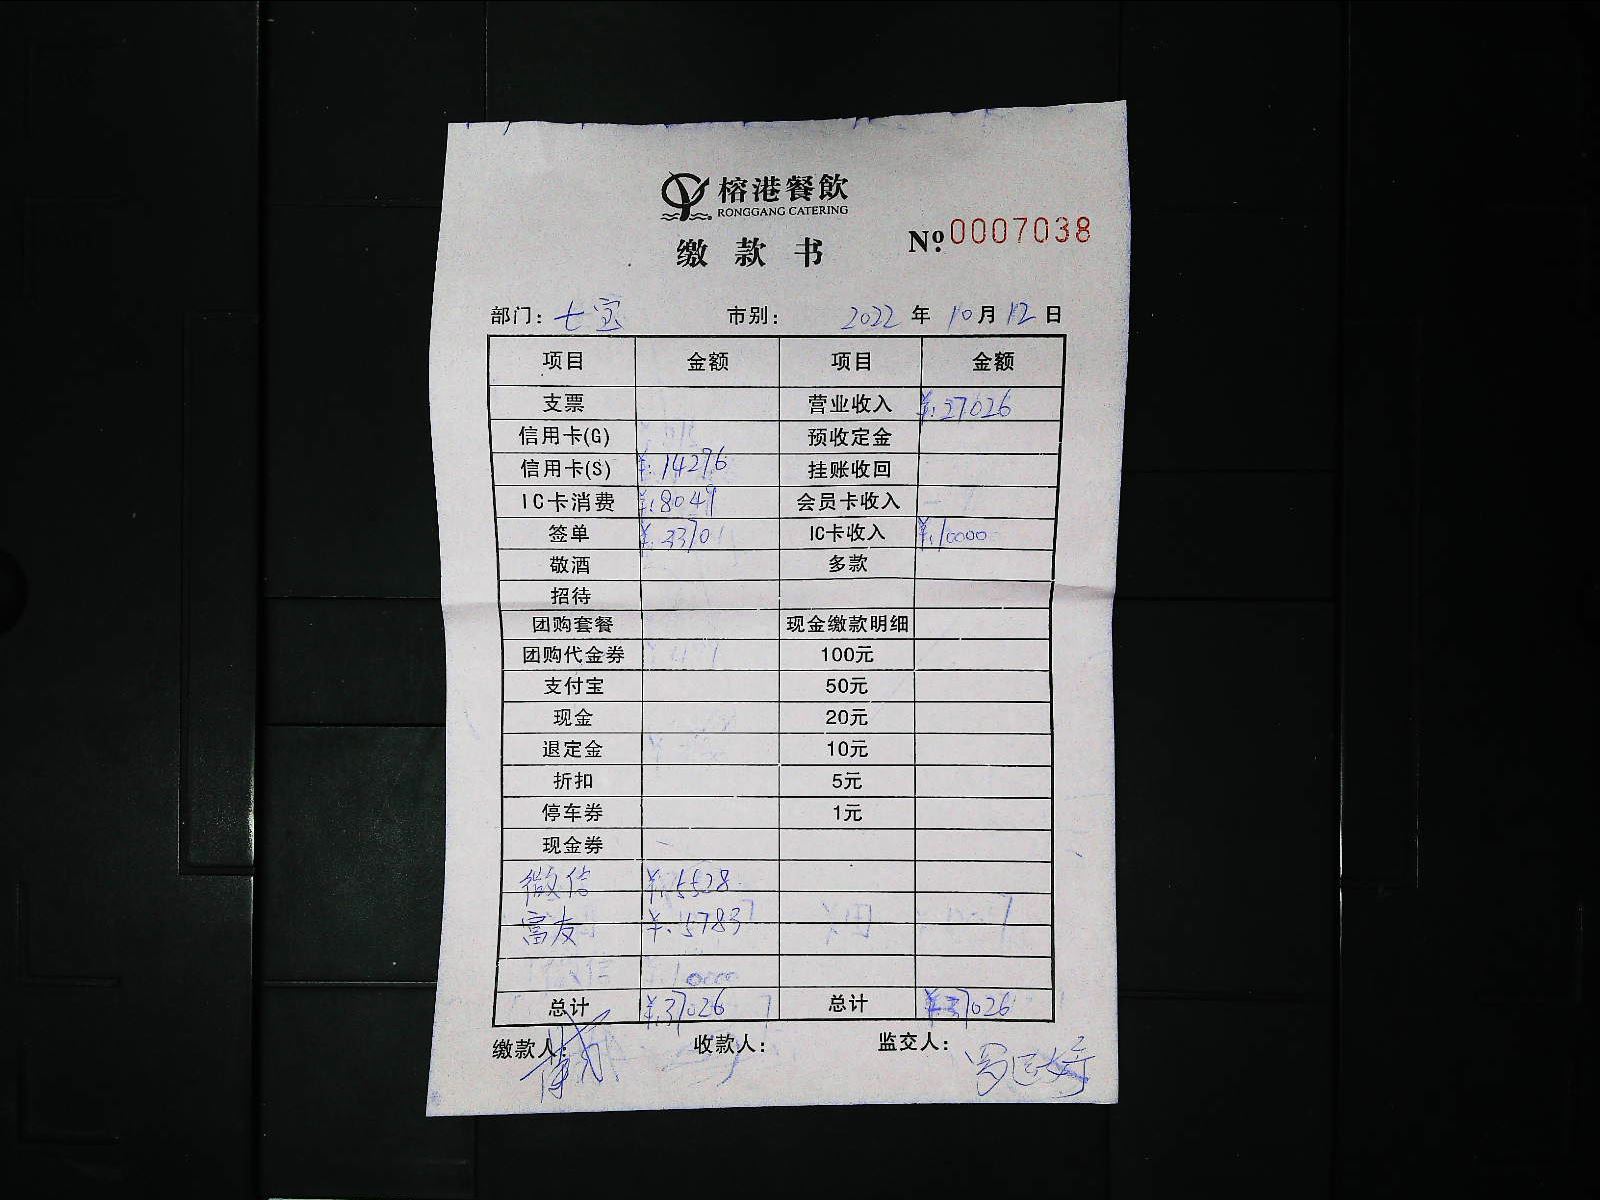 榕港餐飲
RONGGANG CATERING
缴款书
№ 0007038
部门： 七宝 市别： 2022 年 10 月 12 日
项目 金额 项目 金额
支票 营业收入 ¥:27026
信用卡(G) 预收定金
信用卡(S) ¥:14276 挂账收回
IC卡消费 ¥:8049 会员卡收入
签单 ¥:3370 IC卡收入 ¥:10000
敬酒 多款
招待
团购套餐 现金缴款明细
团购代金券 100元
支付宝 50元
现金 20元
退定金 10元
折扣 5元
停车券 1元
现金券
微信 ¥:5528
富友 ¥:5783
总计 ¥:37026 总计 ¥:37026
缴款人： 收款人： 监交人：